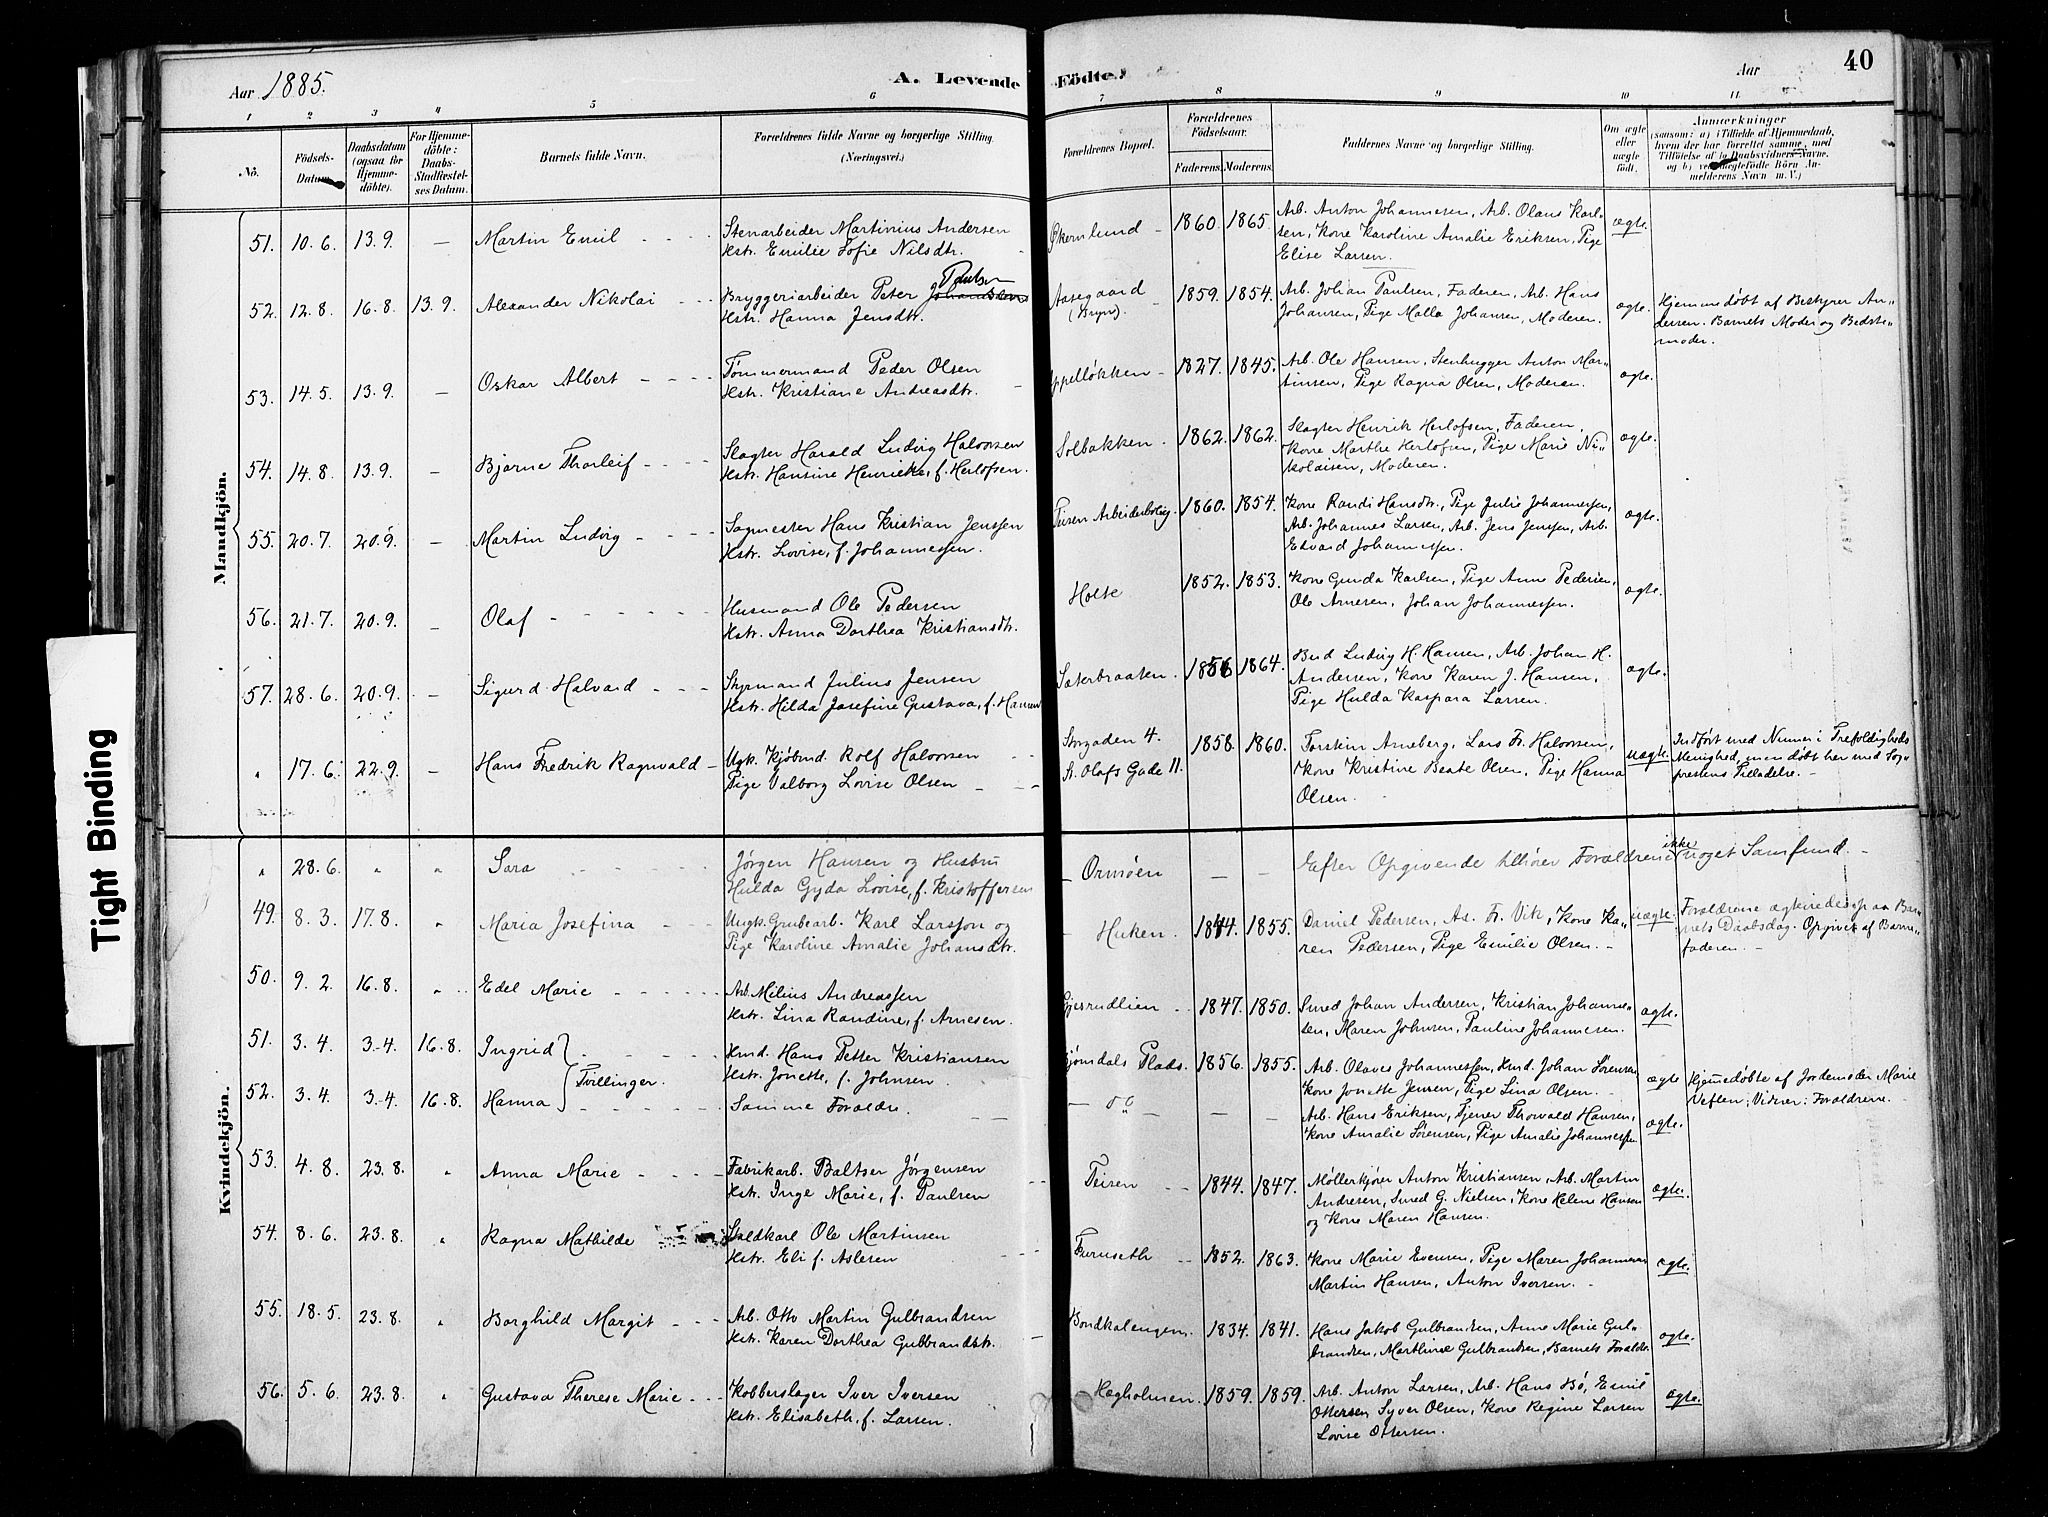 Aar 1885.
A. Levende Födte.
Aar
40
1 2 3 4 5 6 7 8 9 10 11
No.
Födsels-Datum.
Daabsdatum (ogsaa for Hjemme-döbte).
For Hjemme-döbte: Daabs-Stadfæstel-ses Datum.
Barnets fulde Navn.
Forældrenes fulde Navne og borgerlige Stilling. (Næringsvei.)
Forældrenes Bopæl.
Forældrenes Födselsaar.
Faderens. Moderens.
Faddernes Navne og borgerlige Stilling.
Om ægte eller uægte födt.
Anmærkninger
(saasom: a) i Tilfælde af Hjemmedaab, hvem der har forrettet samme, med Tilföielse af to Daabsvidners Navne. og b) ved uægtefödte Börn An-melderens Navn m. V.)
Mandkjön.
51. 10.6. 13.9. — Martin Emil
Stenarbeider Martinius Andersen
Hstr. Emilie Sofie Nilsdtr.
Økernlund 1860. 1865.
Arb. Anton Johannesen, Arb. Olaus Karl-
sen, Kone Karoline Amalie Eriksen, Pige
Elise Larsen.
ægte.
52. 12.8. 16.8. 13.9. Alexander Nikolai
Bryggeriarbeider Peter Paulsen
Hstr. Hanna Jensdtr.
Aasegaard (Bryn). 1859. 1854.
Arb. Johan Paulsen, Faderen, Arb. Hans
Johansen, Pige Malla Johansen, Moderen.
ægte.
Hjemmedøbt af Bestyrer An-
dersen. Barnets Moder og Bedste-
moder.
53. 14.5. 13.9. — Oskar Albert
Tømmermand Peder Olsen
Hstr. Kristiane Andreasdtr.
Appelløkken 1827. 1845.
Arb. Ole Hansen, Stenhugger Anton Mar-
tinsen, Pige Ragna Olsen, Moderen.
ægte.
54. 14.8. 13.9. — Bjarne Thorleif
Slagter Harald Ludvig Halvorsen
Hstr. Hansine Henrikke, f. Herlofsen.
Solbakken. 1862. 1862.
Slagter Henrik Herlofsen, Faderen,
Kone Marthe Herlofsen, Pige Marie Ni-
kolaisen, Moderen.
ægte.
55. 20.7. 20.9. — Martin Ludvig
Sagmester Hans Kristian Jenssen
Hstr. Lovise, f. Johannessen.
Teisen Arbeiderbolig. 1860. 1854.
Kone Randi Hansdtr., Pige Julie Johannessen,
Arb. Johannes Larsen, Arb. Jens Jenssen, Arb.
Edvard Johannessen.
ægte.
56. 21.7. 20.9. — Olaf
Husmand Ole Pedersen
Hstr. Anna Dorthea Kristiansdtr.
Holte 1852. 1853.
Kone Gunda Karlsen, Pige Anne Pedersen,
Ole Arnesen, Johan Johannessen.
ægte.
57. 28.6. 20.9. — Sigurd Halvard
Styrmand Julius Jensen
Hstr. Hilda Josefine Gustava, f. Hansen
Sæterbraaten. 1856 1864.
Bud Ludvig H. Hansen, Arb. Johan H.
Andersen, Kone Karen J. Hansen,
Pige Hulda Kaspara Larsen.
ægte.
" 17.6. 22.9. — Hans Fredrik Ragnvald
Ugk. Kjøbmd. Rolf Halvorsen
Pige Valborg Lovise Olsen
Storgaden 4.
St. Olafs Gade 11.
1858. 1860.
Torstein Arneberg, Lars Fr. Halvorsen,
Kone Kristine Beate Olsen, Pige Hanna
Olsen.
uægte.
Indført med Numer i Trefoldigheds
Menighed, men døbt her med Sog-
præstens Tilladelse.
Kvindekjön.
" 28.6. " " Sara
Jørgen Hansen og Hustru
Hulda Gyda Lovise, f. Kristoffersen
Ormøen — —
Efter Opgivende tilhører Forældrene ikke noget Samfund.
49. 8.3. 17.8. " Maria Josefina
Ungk. Grubearb. Karl Larsson og
Pige Karoline Amalie Johansdtr.
Huken. 1844. 1855.
Daniel Pedersen, As. Fr. Vik, Kone Ka-
ren Pedersen, Pige Emilie Olsen.
uægte.
Forældrene ægteviedes paa Bar-
nets Daabsdag. Opgivet af Barne-
faderen.
50. 9.2. 16.8. " Edel Marie
Arb. Milius Andreassen
Hstr. Lina Randine, f. Arnesen.
Gjersrudlien 1847. 1850.
Smed Johan Andersen, Kristian Johanne-
sen, Maren Johnsen, Pauline Johannesen.
ægte.
51. 3.4. 3.4. 16.8. Ingrid } Tvillinger.
Hmd. Hans Petter Kristiansen
Hstr. Jonette, f. Johnsen.
Bjørndals Plads. 1856. 1855.
Arb. Olaves Johannessen, Hmd. Johan Sørensen
Kone Jonette Jensen, Pige Lina Olsen.
ægte
Hjemmedøbte af Jordemoder Marie
Veflen; Vidner: Forældrene.
52. 3.4. 3.4. 16.8. Hanna
Samme Forældre.
do — —
Arb. Hans Eriksen, Tjener Thorvald Hansen,
Kone Amalie Sørensen, Pige Amalie Johannessen
ægte.
53. 4.8. 23.8. " Anna Marie
Fabrikarb. Baltser Jørgensen
Hstr. Inge Marie, f. Paulsen
Teisen 1844. 1847.
Møllerkjører Anton Kristiansen, Arb. Martin
Andresen, Smed G. Nielsen, Kone Helene Hansen
og Kone Maren Hansen.
ægte.
54. 8.6. 23.8. " Ragna Mathilde
Ole Martinsen
Hstr. Eli f. Aslesen
Furuseth 1852. 1863.
Kone Marie Evensen, Pige Maren Johannesen
Martin Hansen, Anton Iversen.
ægte.
55. 18.5. 23.8. " Borghild Margit
Arb. Otto Martin Gulbrandsen
Hstr. Karen Dorthea Gulbrandsdtr.
Bondkalengen. 1834. 1841.
Hans Jakob Gulbrandsen, Anne Marie Gul-
brandsen, Marthine Gulbrandsen, Barnets Forældre
ægte.
56. 5.6. 23.8. " Gustava Therese Marie
Kobberslager Iver Iversen
Hstr. Elisabeth, f. Larsen.
Hægholmen. 1859. 1859.
Arb. Anton Larsen, Arb. Hans Bø, Emil
Ottersen, Syver Olsen, Kone Regine Larsen
Lovise Ottersen.
ægte.
Tight Binding